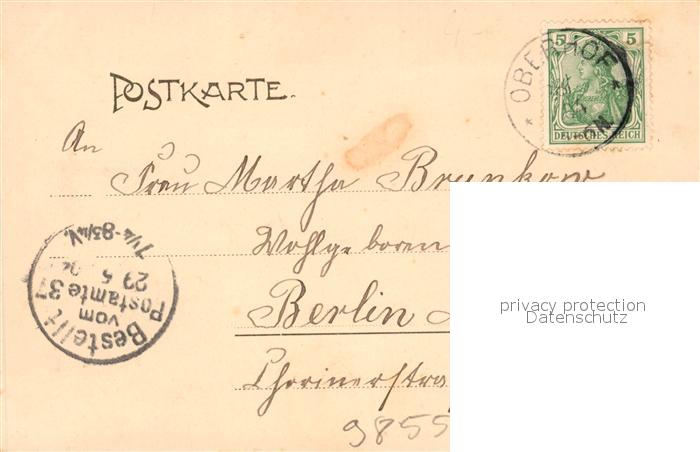 5 5
DEUTSCHES REICH
* OBERHOF *
POSTKARTE.
An
Frau Martha Brunkow
Wohlgeboren
Berlin
Chorinerstra
Bestellt
vom
Postamte 37
29 5
7¼-8¾V.
9855
privacy protection
Datenschutz